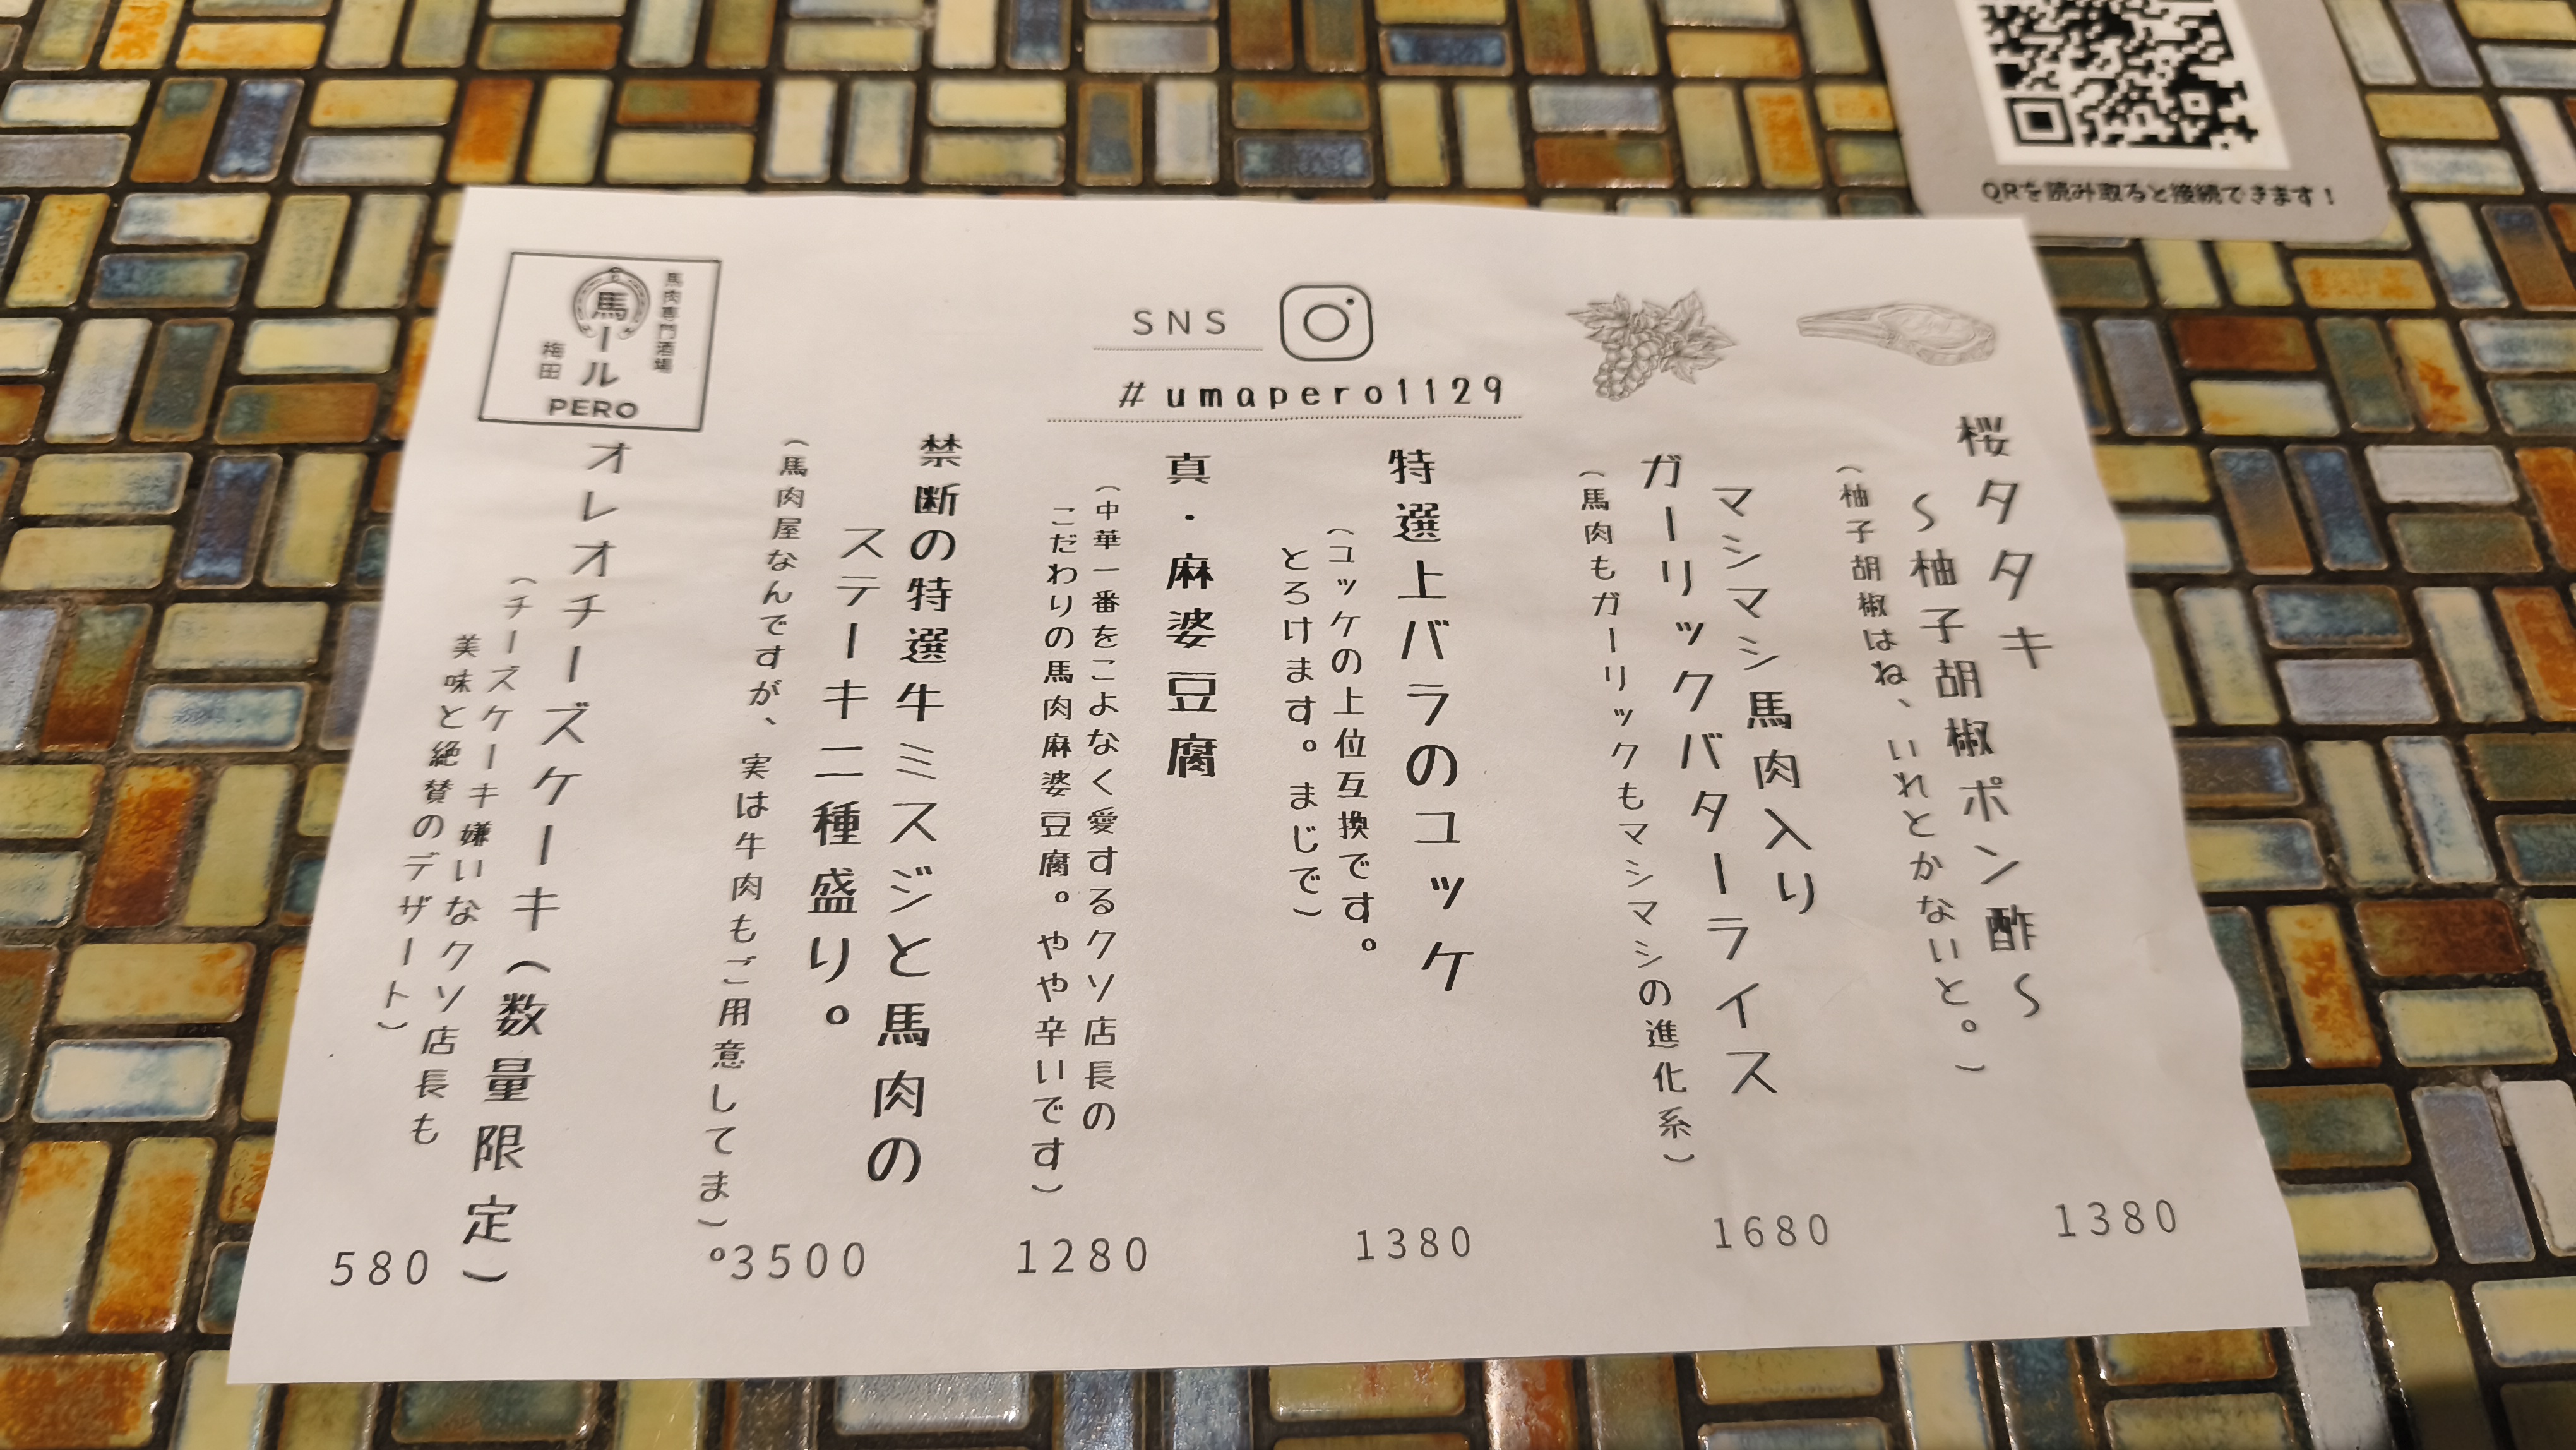 QRを読み取ると接続できます！
馬肉専門酒場
馬ール
梅田
PERO
SNS
#umapero1129
桜タタキ
〜柚子胡椒ポン酢〜
（柚子胡椒はね、いれとかないと。）
1380
マシマシ馬肉入り
ガーリックバターライス
（馬肉もガーリックもマシマシの進化系）
1680
特選上バラのユッケ
（ユッケの上位互換です。
とろけます。まじで）
1380
真・麻婆豆腐
（中華一番をこよなく愛するクソ店長の
こだわりの馬肉麻婆豆腐。やや辛いです）
1280
禁断の特選牛ミスジと馬肉の
ステーキ二種盛り。
（馬肉屋なんですが、実は牛肉もご用意してま）。
3500
オレオチーズケーキ（数量限定）
（チーズケーキ嫌いなクソ店長も
美味と絶賛のデザート）
580